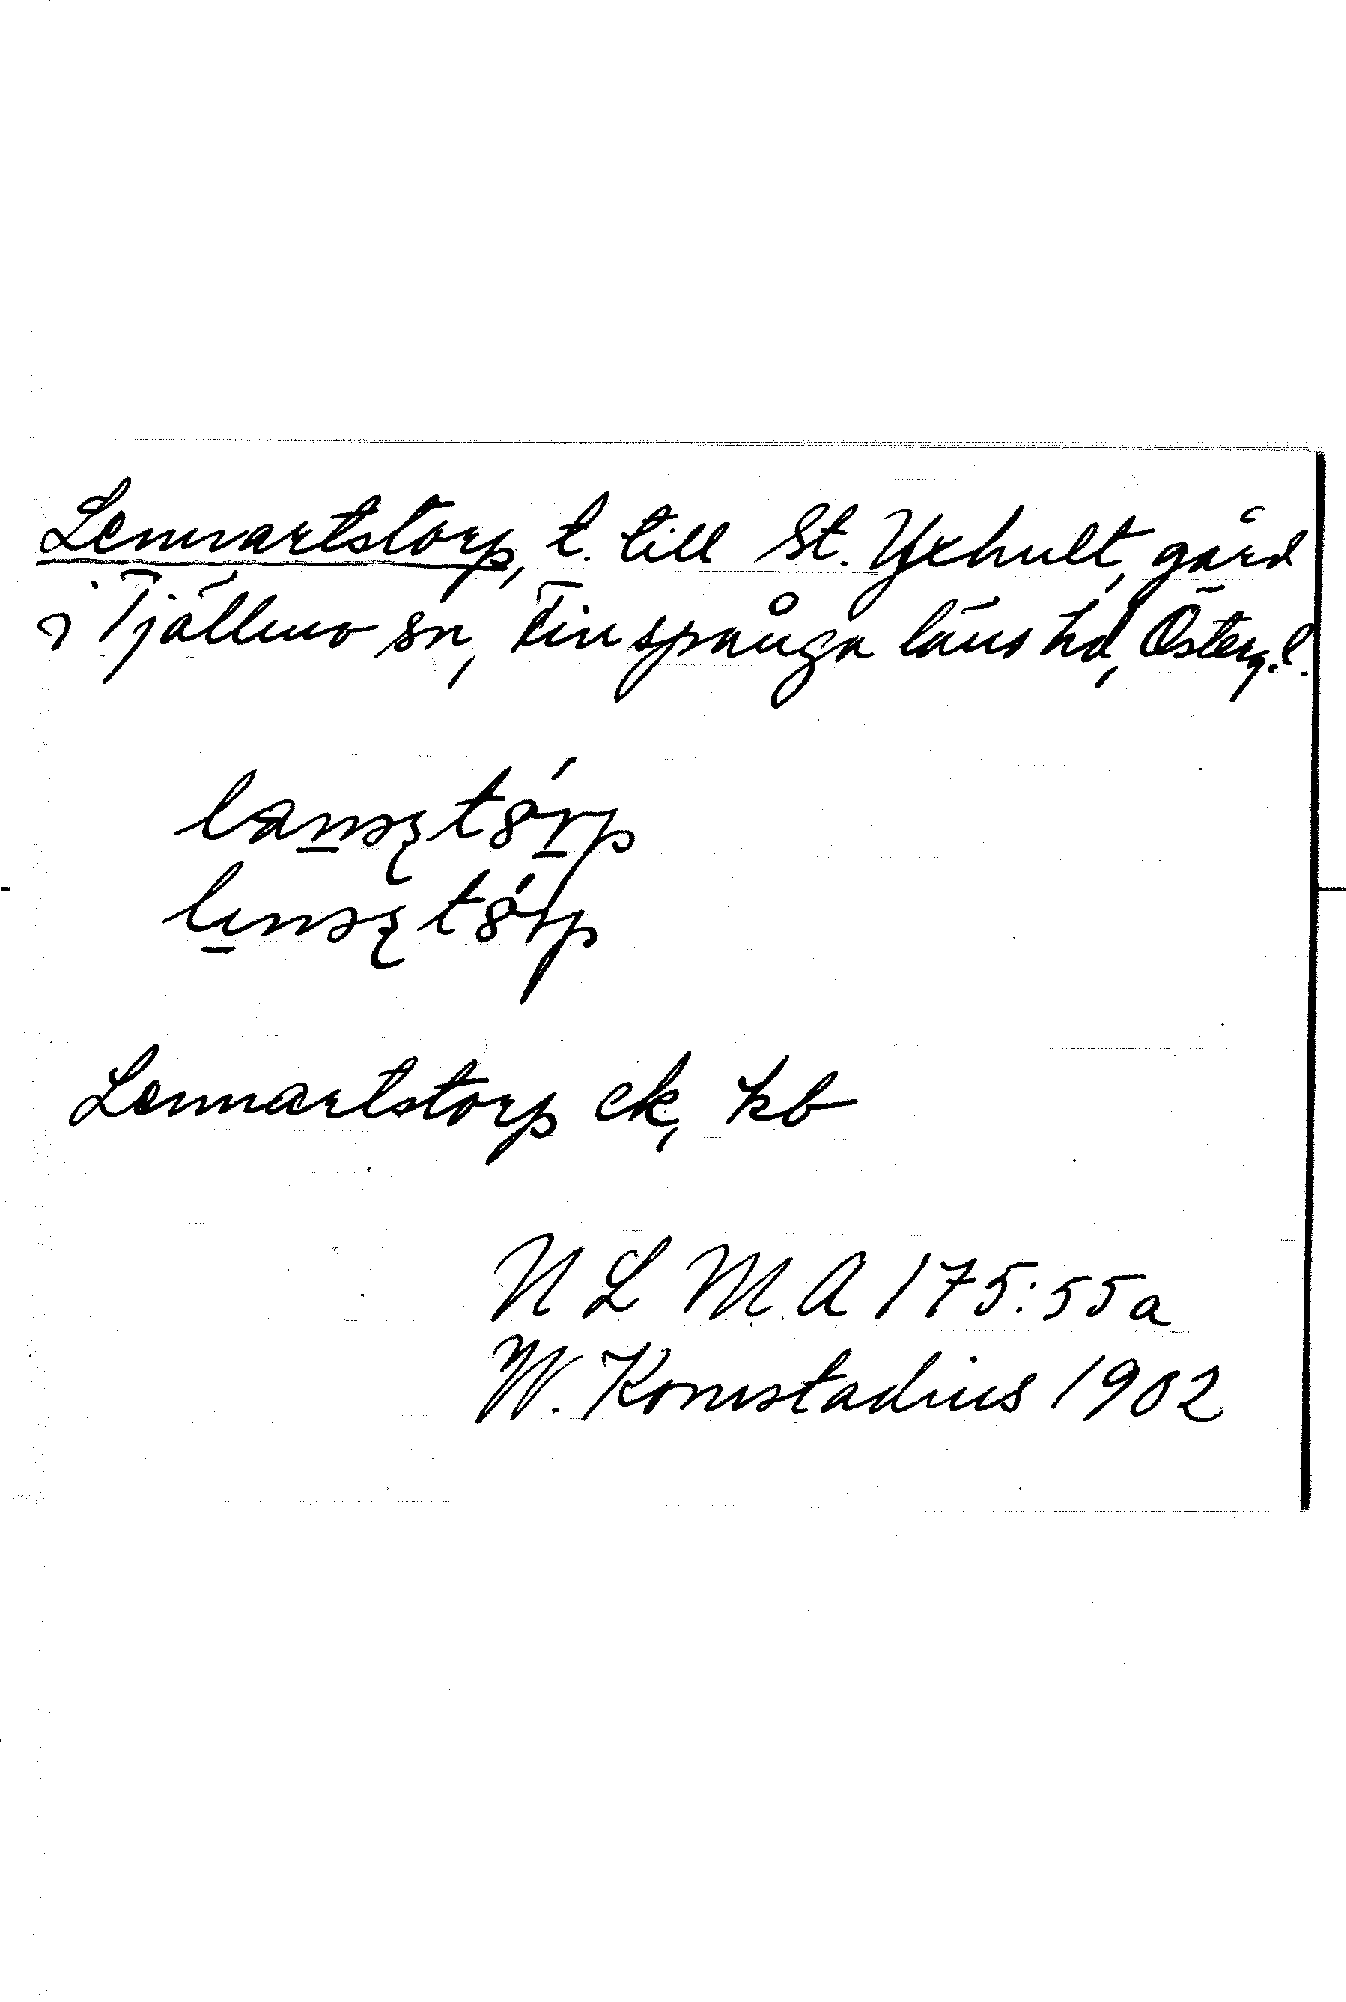 Lennartstorp, t. till St. Yxhult, gård
i Tjällmo sn, Finspånga läns hd, Österg. l.
Lennartstorp ek, kb
N L M A 175:55a
W. Komstadius 1902